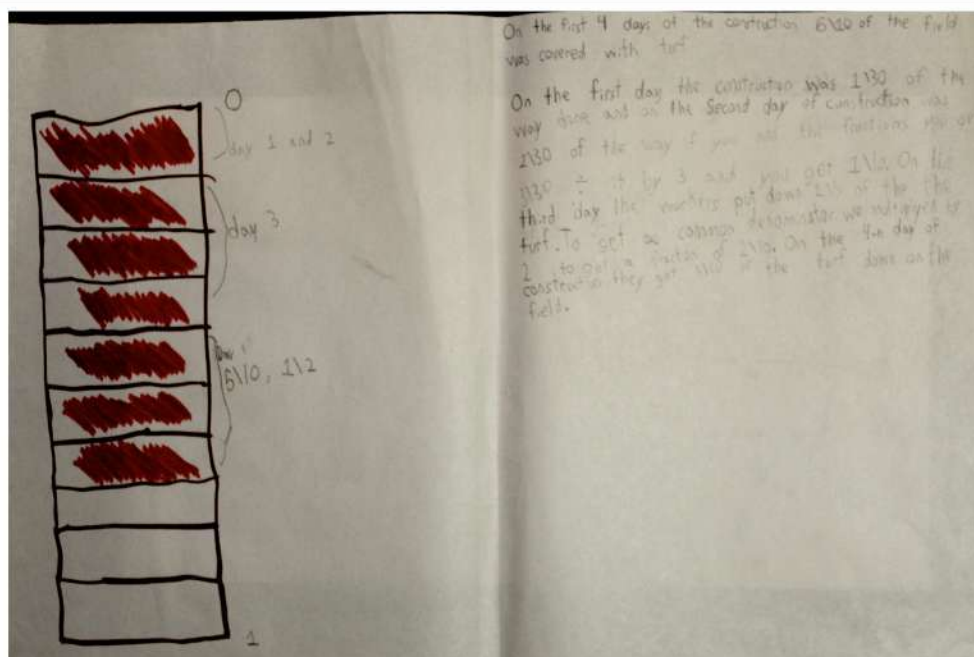 0
day 1 and 2
day 3
5\10, 1\2
1
On the first 4 days of the contruction 6\10 of the field
was covered with turf
On the first day the contruction was 1\30 of the
way done and on the Second day of construction was
2\30 of the way if you add the fractions you get
3\30 ÷ it by 3 and you get 1\10. On the
third day the workers put down of the the
turf. To get a common denominator we multiplyed by
2 to get a fraction of 2\10. On the 4th day of
construction they got of the turf done on the
field.